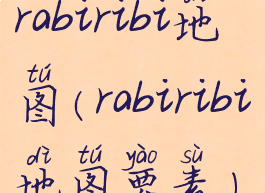 rabiribi地
tú
图(rabiribi
dì tú yào sù
地图要素)